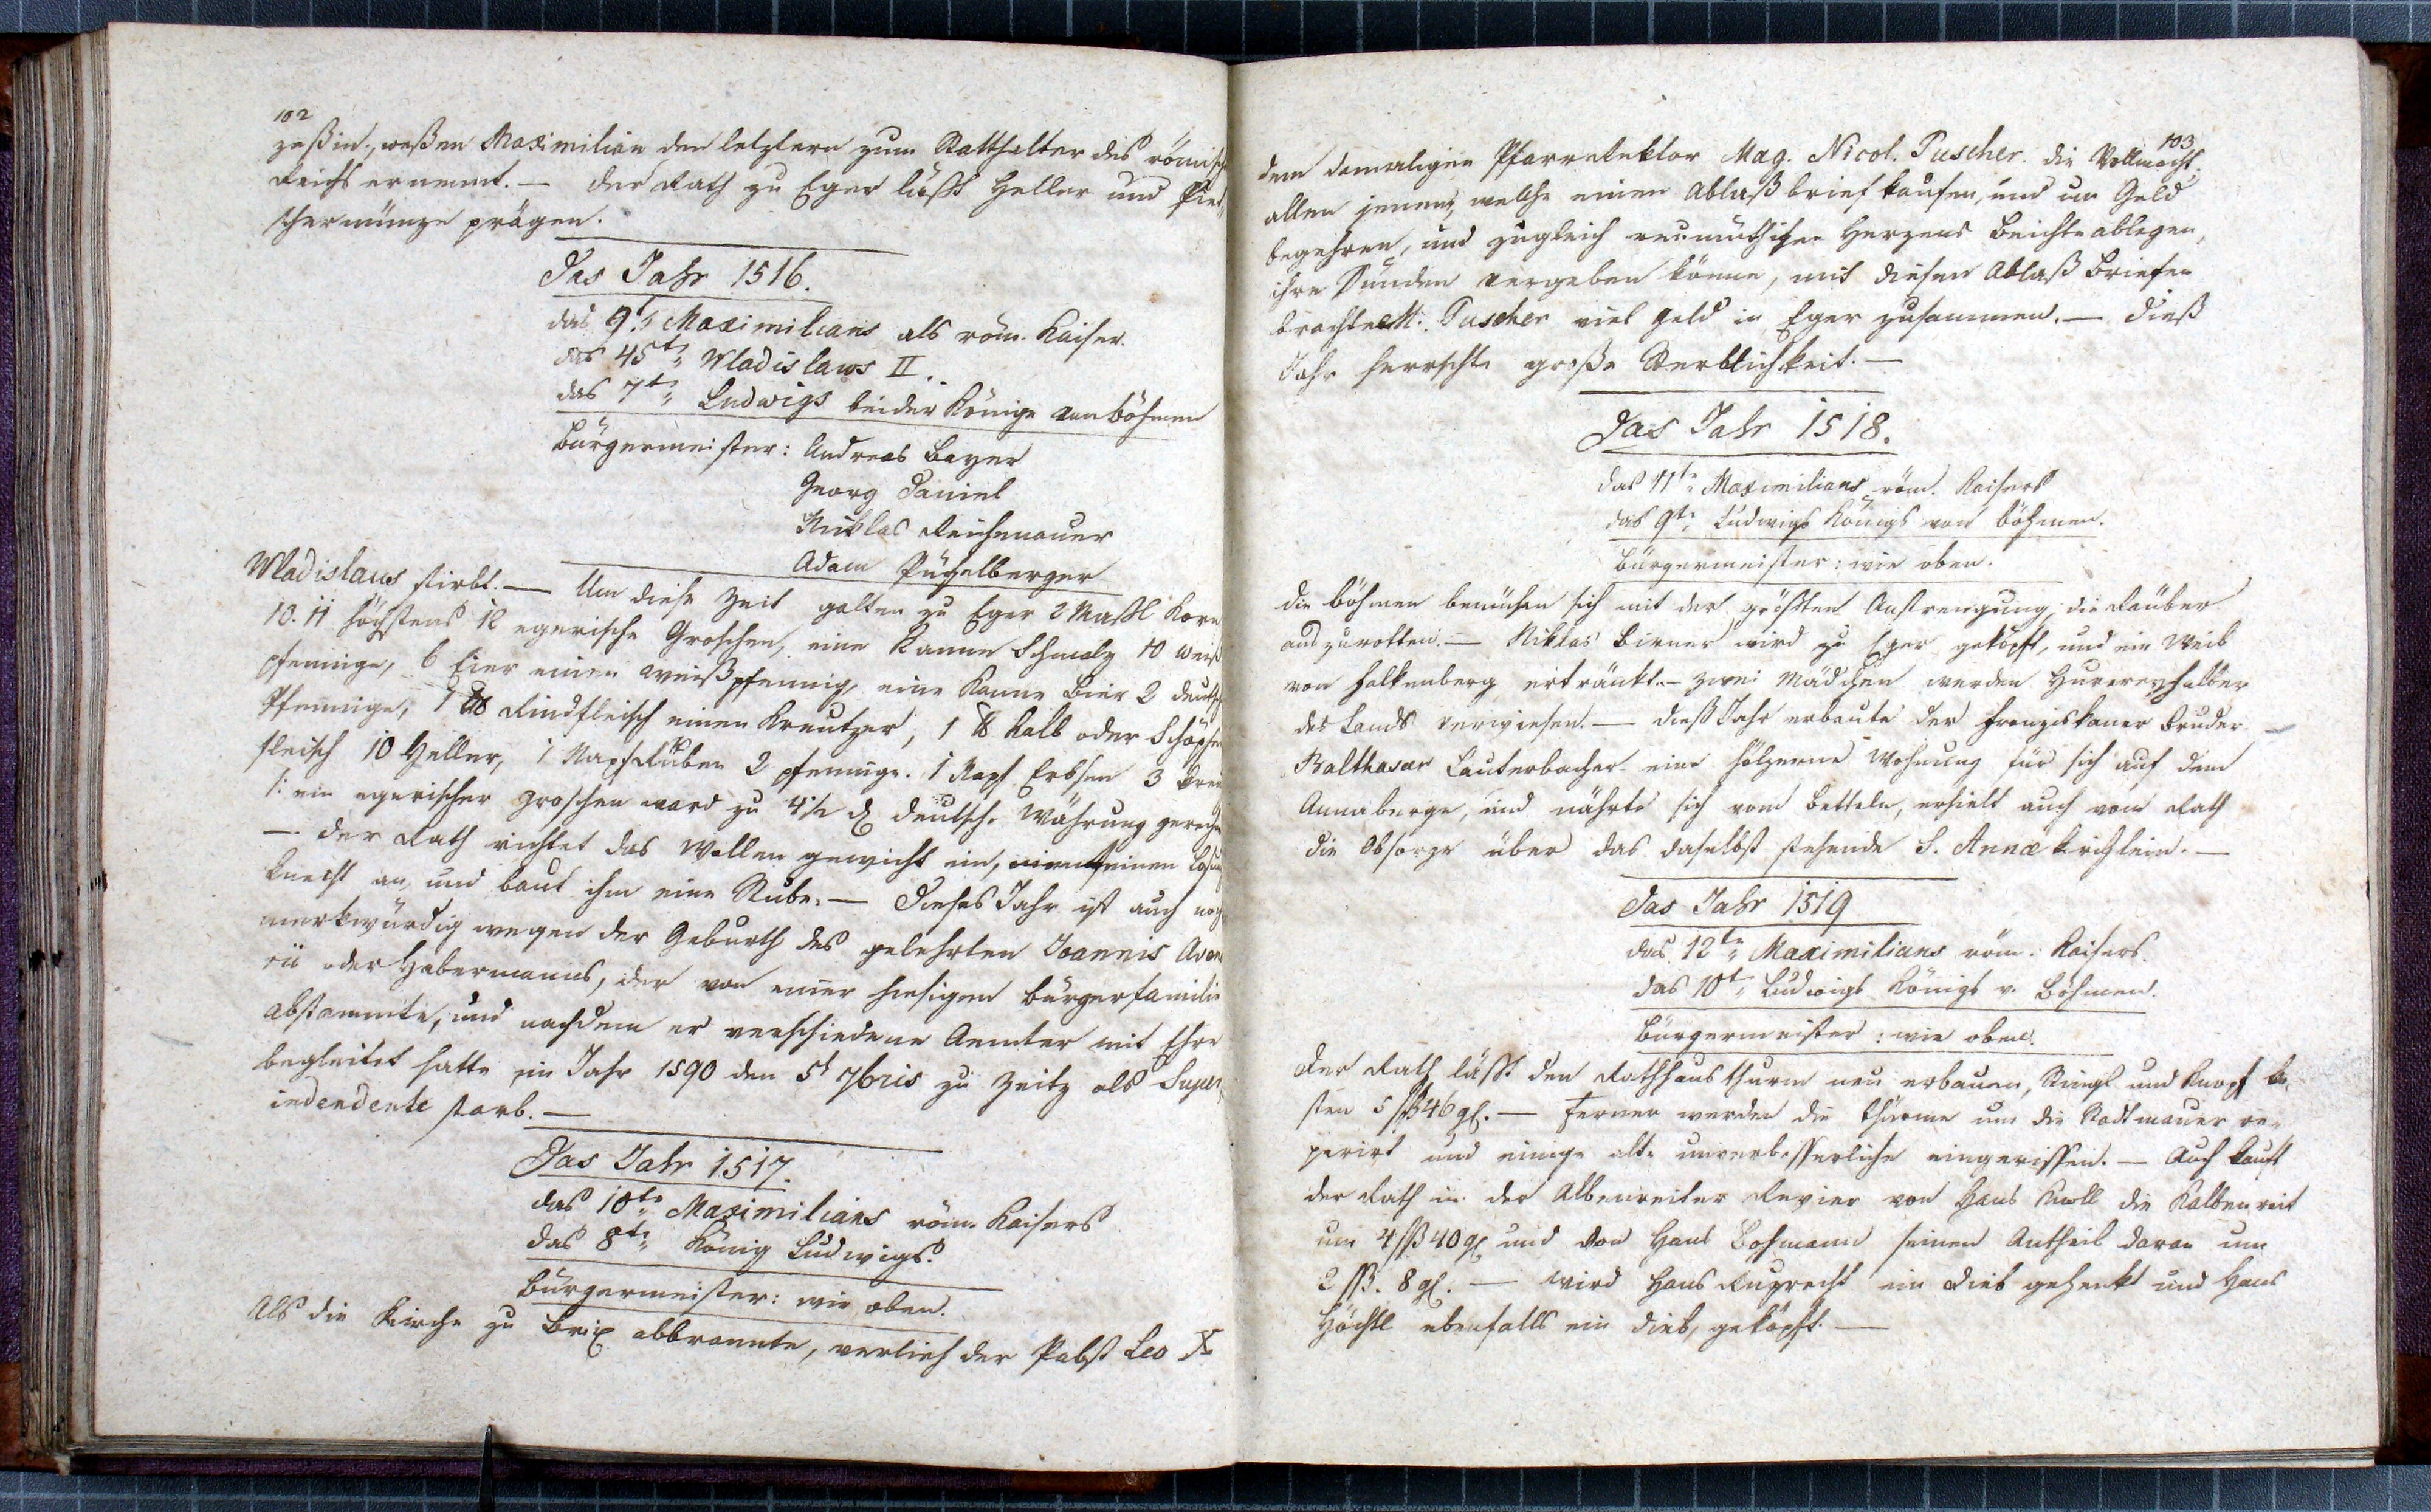 102
zeßin, weßen Maximilian den letztern zum Statthalter des römisch
Reichs ernennt. — der Rath zu Eger läßt Heller und
schermünze prägen.
Das Jahr 1516.
das 9te Maximilians als röm. Kaiser.
das 45te Wladislaws II.
das 7te Ludwigs beider Könige von Böhmen
Bürgermeister: Andreas Bayer
Georg Daniel
Niklas Reichenauer
Adam Püchelberger
Wladislaus stirbt. — Um diese Zeit galten zu Eger 2 Maßl Korn
10. 11 höchstens 12 egerische Groschen, eine Kanne Schmalz 10 weiß
pfennige, 6 Eier einen Weißpfennig, eine Kanne Bier 2 deutsch
Pfennige, 1 ℔ Rindfleisch einen Kreutzer, 1 ℔ Kalb oder Schöpsen
fleisch 10 Heller, 1 Napf Rüben 2 pfennige. 1 Napf Erbsen 3 Kreu
/: ein egerischer Groschen ward zu 4½ d deutsche Währung gerech
— der Rath richtet das Wollen gewicht ein, nimt einen Losung
knecht an, und baut ihm eine Stube. — Dieses Jahr ist auch noch
merkwürdig wegen der Geburth des gelehrten Joannis Avena
rii oder Habermanns, der von einer hiesigen bürgerfamilie
abstammte, und nachdem er verschiedene Aemter mit Ehre
begleitet hatte im Jahr 1590 den 5t 7bris zu Zeitz als Super
indendente starb. —
Das Jahr 1517.
das 10te Maximilians röm. Kaisers
das 8te König Ludwigs.
Bürgermeister: wie oben.
Als die Kirche zu Brix abbrannte, verlieh der Pabst Leo X
103
dem damaligen Pfarrrektor Mag. Nicol. Puscher die Vollmacht.
allen jenen, welche einen Ablaßbrief kaufen, und um Geld
begehren, und zugleich reumüthigen Herzens Beichte ablegen,
ihre Sünden vergeben könne, mit diesen Ablaß Briefen
brachte M. Puscher viel Geld in Eger zusammen. — Dieß
Jahr herrschte große Sterblichkeit. —
Das Jahr 1518.
das 11te Maximilians röm. Kaisers
das 9te Ludwigs Königs von Böhmen.
Bürgermeister: wie oben.
die Böhmen bemühen sich mit der größten Anstrengung, die Räuber
auszurotten. — Niklas Birner wird zu Eger geköpft, und ein Weib
von Falkenberg ertränkt. — zwei Mädchen werden Hurereyhalber
des Lands verwiesen. — dieß Jahr erbaute der Franziskaner Bruder
Balthasar Lauterbacher eine hölzerne Wohnung für sich auf dem
Annaberge, und nährte sich vom betteln, erhielt auch vom Rath
die Obsorge über das daselbst stehende S. Annæ kirchlein. —
Das Jahr 1519
das 12te Maximilians röm: Kaisers.
das 10te Ludwigs Königs v. Böhmen.
Bürgermeister: wie oben.
der Rath läßt den Rathhausthurm neu erbauen, Stingl und Knopf ko
sten 5 ßß 46 gl. — Ferner werden die Thürme um die Stadtmauer re-
perirt und einige alte unverbesserliche eingerissen. — Auch kauft
der Rath in der Albenreiter Revier von Hans Knoll die Kalbenreit
um 4 ßß 40 gl und von Hans Bohmann seinen Antheil daran um
2 ßß. 8 gl. — wird Hans Ruprecht ein Dieb gehenkt und Hans
Höchtl ebenfalls ein Dieb, geköpft. —